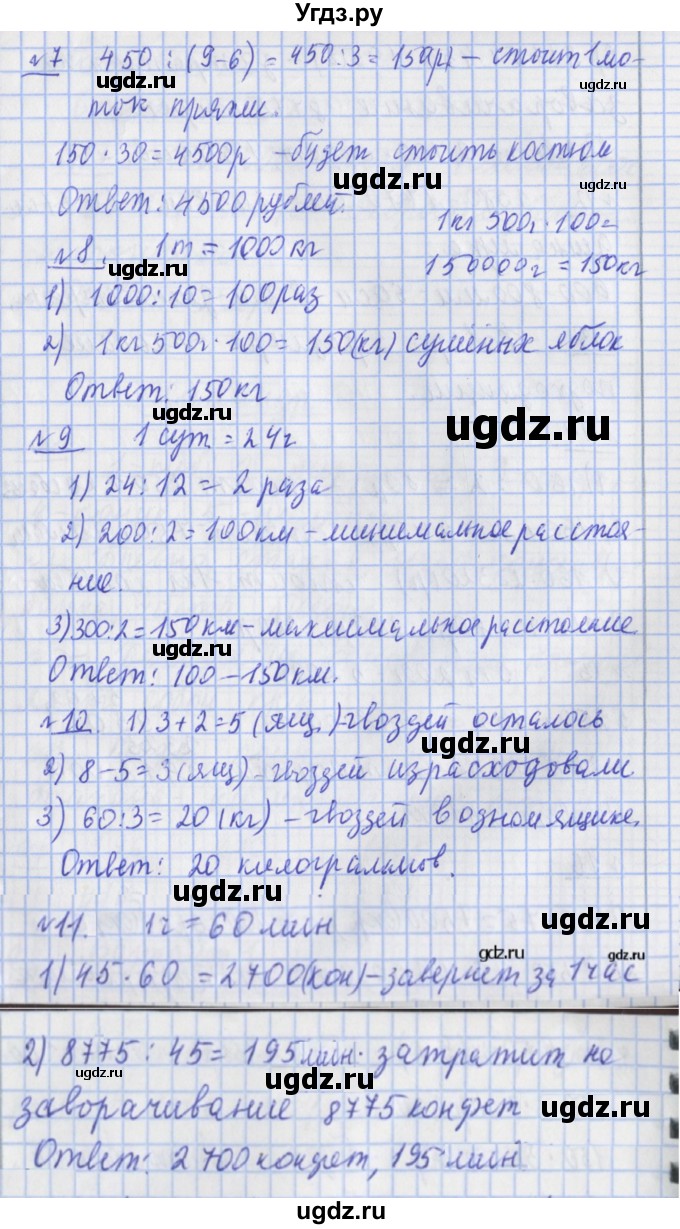 Угдз.ру
№7 450 : (9-6) = 450:3 = 150(р) - стоит 1 мо-
ток пряжи.
150 · 30 = 4500р - будет стоить костюм
Ответ: 4500 рублей.
1кг 500г · 100=
150000г = 150кг
№8. 1т = 1000кг
1) 1000:10 = 100раз
2) 1кг 500г · 100 = 150(кг) сушёных яблок
Ответ: 150кг
№9 1 сут = 24г
1) 24 : 12 = 2 раза
2) 200 : 2 = 100км - минимальное расстоя-
ние.
3) 300:2 = 150км - максимальное расстояние
Ответ: 100 - 150км.
№10. 1) 3+2=5 (ящ.) - гвоздей осталось
2) 8-5=3(ящ) - гвоздей израсходовали
3) 60:3 = 20(кг) - гвоздей в одном ящике.
Ответ: 20 килограммов.
№11. 1ч = 60 мин
1) 45 · 60 = 2700(кон) - завернет за 1 час
2) 8775 : 45 = 195мин. затратит на
заворачивание 8775 конфет
Ответ: 2700 конфет, 195 мин.
ugdz.ru
ugdz.ru
ugdz.ru
ugdz.ru
ugdz.ru
ugdz.ru
ugdz.ru
ugdz.ru
ugdz.ru
ugdz.ru
ugdz.ru
gdz.ru
gdz.ru
ugdz.ru
ugdz.ru
ugdz.ru
ugdz.ru